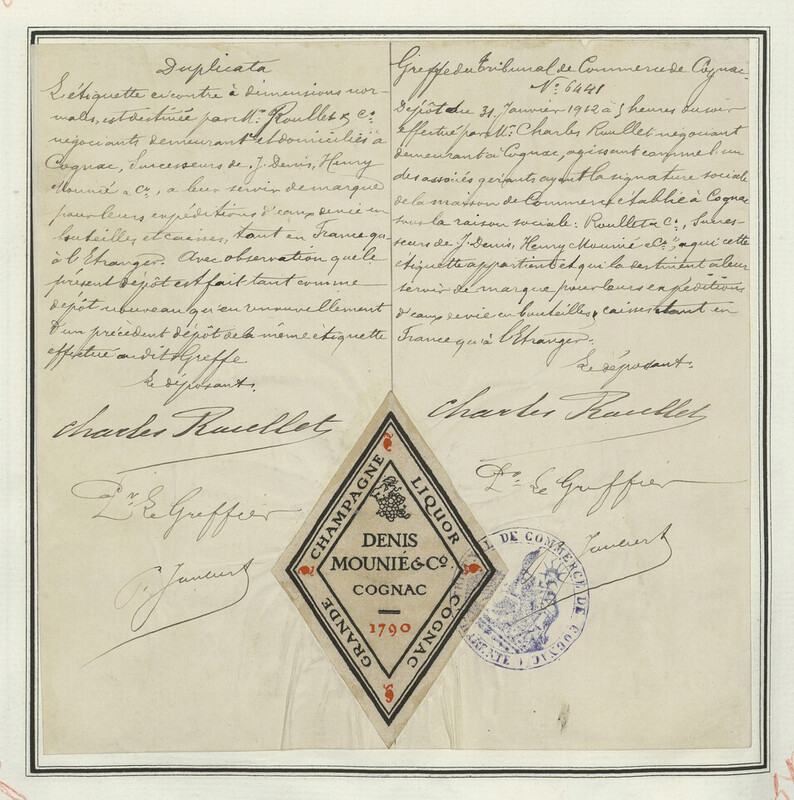 Duplicata
L'étiquette ci contre à dimensions nor-
males, est destinée par Mrs Roullet & Co
négociants demeurant et domiciliés à
Cognac, Successeurs de J. Denis, Henry
Mounié & Co, a leur servir de marque
pour leurs expéditions d'eaux de vie en
bouteilles et caisses, tant en France qu'
à l'Etranger. Avec observation que le
présent dépôt est fait tant comme
dépôt nouveau qu'en renouvellement
d'un précédent dépôt de la même étiquette
effectué audit Greffe
Le déposant.
Charles Roullet
Pr Le Greffier
Greffe du Tribunal de Commerce de Cognac
No 6441
Dépôt du 31 Janvier 1912 à 5 heures du soir
effectué par Mr Charles Roullet négociant
demeurant à Cognac, agissant comme l'un
des associés gérants ayant la signature sociale
de la maison de Commerce établie à Cognac
sous la raison sociale: Roullet & Co, Succes-
seurs de J. Denis, Henry Mounié & Co, à qui cette
étiquette appartient et qui la destinent à leur
servir de marque pour leurs expéditions
d'eaux de vie en bouteilles & caisses tant en
France qu'à l'Etranger.
Le déposant.
Charles Roullet
Pr Le Greffier
GRANDE CHAMPAGNE
LIQUOR COGNAC
DENIS
MOUNIÉ & Co
COGNAC
1790
DE COMMERCE DE COGNAC